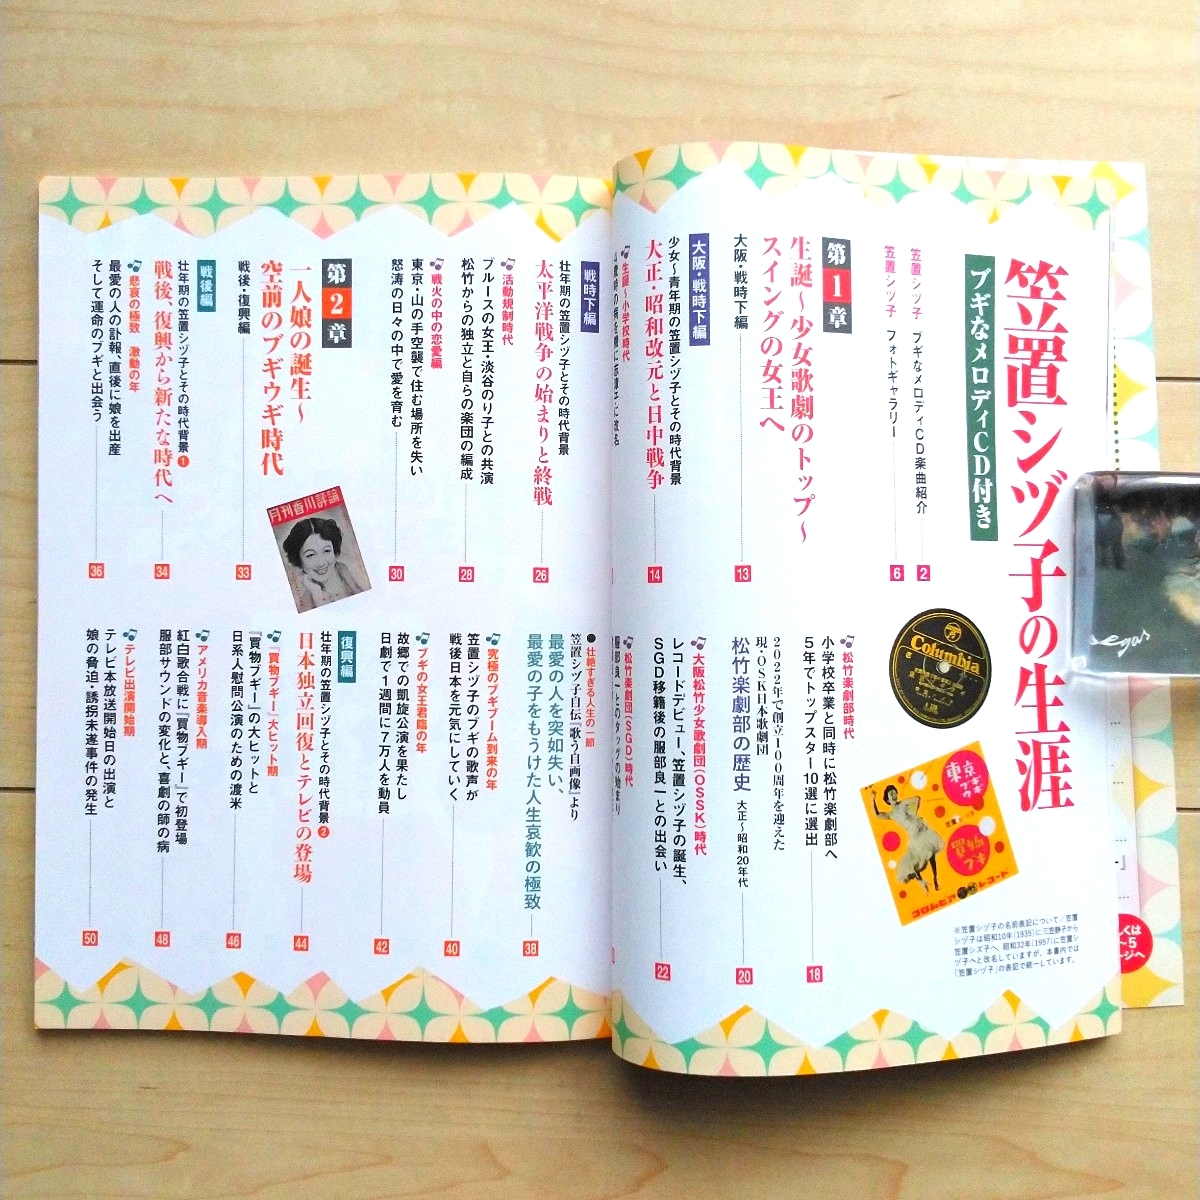 笠置シヅ子の生涯
ブギなメロディCD付き
笠置シヅ子 ブギなメロディCD楽曲紹介 2
笠置シヅ子 フォトギャラリー 6
第1章
生誕～少女歌劇のトップ～
スイングの女王へ
大阪・戦時下編 13
大阪・戦時下編
少女～青年期の笠置シヅ子とその時代背景
大正・昭和改元と日中戦争 14
生誕～小学校時代
Columbia
東京ブギウギ
買物ブギ
コロムビアレコード
※笠置シヅ子の名前表記について／笠置
シヅ子は昭和10年(1935)に三笠静子から
笠置シズ子へ 昭和32年(1957)に笠置シ
ヅ子へと改名していますが、本書内では
「笠置シヅ子」の表記で統一しています。
松竹楽劇部時代
小学校卒業と同時に松竹楽劇部へ
5年でトップスター10選に選出 18
2022年で創立100周年を迎えた
現・OSK日本歌劇団
松竹楽劇部の歴史 大正～昭和20年代 20
大阪松竹少女歌劇団(OSSK)時代
レコードデビュー、笠置シヅ子の誕生、
SGD移籍後の服部良一との出会い 22
松竹楽劇団(SGD)時代
戦時下編
壮年期の笠置シヅ子とその時代背景
太平洋戦争の始まりと終戦 26
活動規制時代
ブルースの女王・淡谷のり子との共演
松竹からの独立と自らの楽団の編成 28
戦火の中の恋愛編
東京・山の手空襲で住む場所を失い
怒涛の日々の中で愛を育む 30
第2章
一人娘の誕生～
空前のブギウギ時代
戦後・復興編 33
戦後編
壮年期の笠置シヅ子とその時代背景❶
戦後、復興から新たな時代へ 34
悲哀の極致 激動の年
最愛の人の訃報、直後に娘を出産
そして運命のブギと出会う 36
月刊香川評論
●壮絶すぎる人生の一節
笠置シヅ子自伝『歌う自画像』より
最愛の人を突如失い、
最愛の子をもうけた人生哀歓の極致 38
究極のブギブーム到来の年
笠置シヅ子のブギの歌声が
戦後日本を元気にしていく 40
ブギの女王君臨の年
故郷での凱旋公演を果たし
日劇で1週間に7万人を動員 42
復興編
壮年期の笠置シヅ子とその時代背景❷
日本独立回復とテレビの登場 44
「買物ブギー」大ヒット期
『買物ブギー』の大ヒットと
日系人慰問公演のための渡米 46
アメリカ音楽導入期
紅白歌合戦に『買物ブギー』で初登場
服部サウンドの変化と、喜劇の師の病 48
テレビ出演開始期
テレビ本放送開始日の出演と
娘の脅迫・誘拐未遂事件の発生 50
egas
しくは
～5
ージへ